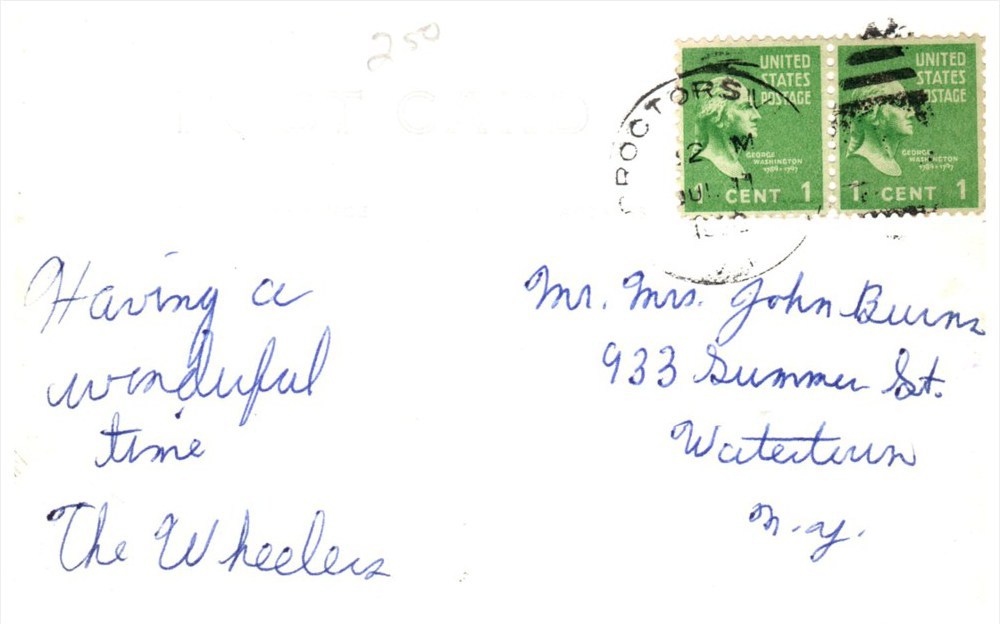 250
POST CARD
UNITED STATES POSTAGE
GEORGE WASHINGTON
1789-1797
1 CENT 1
UNITED STATES POSTAGE
GEORGE WASHINGTON
1789-1797
1 CENT 1
PROCTORS
M
Having a
wonduful
time
The Wheelers
Mr. Mrs. John Burns
933 Summer St.
Watertown
N.Y.